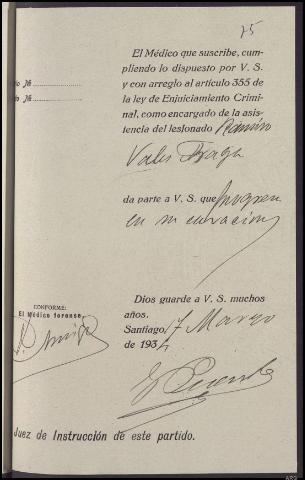 75
El Médico que suscribe, cum-
pliendo lo dispuesto por V. S.
y con arreglo al artículo 355 de
la ley de Enjuiciamiento Crimi-
nal, como encargado de la asis-
tencia del lesionado Ramiro
Vales Fraga
da parte a V. S. que progresa
en su curación
Nº
Nº
CONFORME:
El Médico forense,
Dios guarde a V. S. muchos
años.
Santiago, 7 Marzo
de 1934
Juez de Instrucción de este partido.